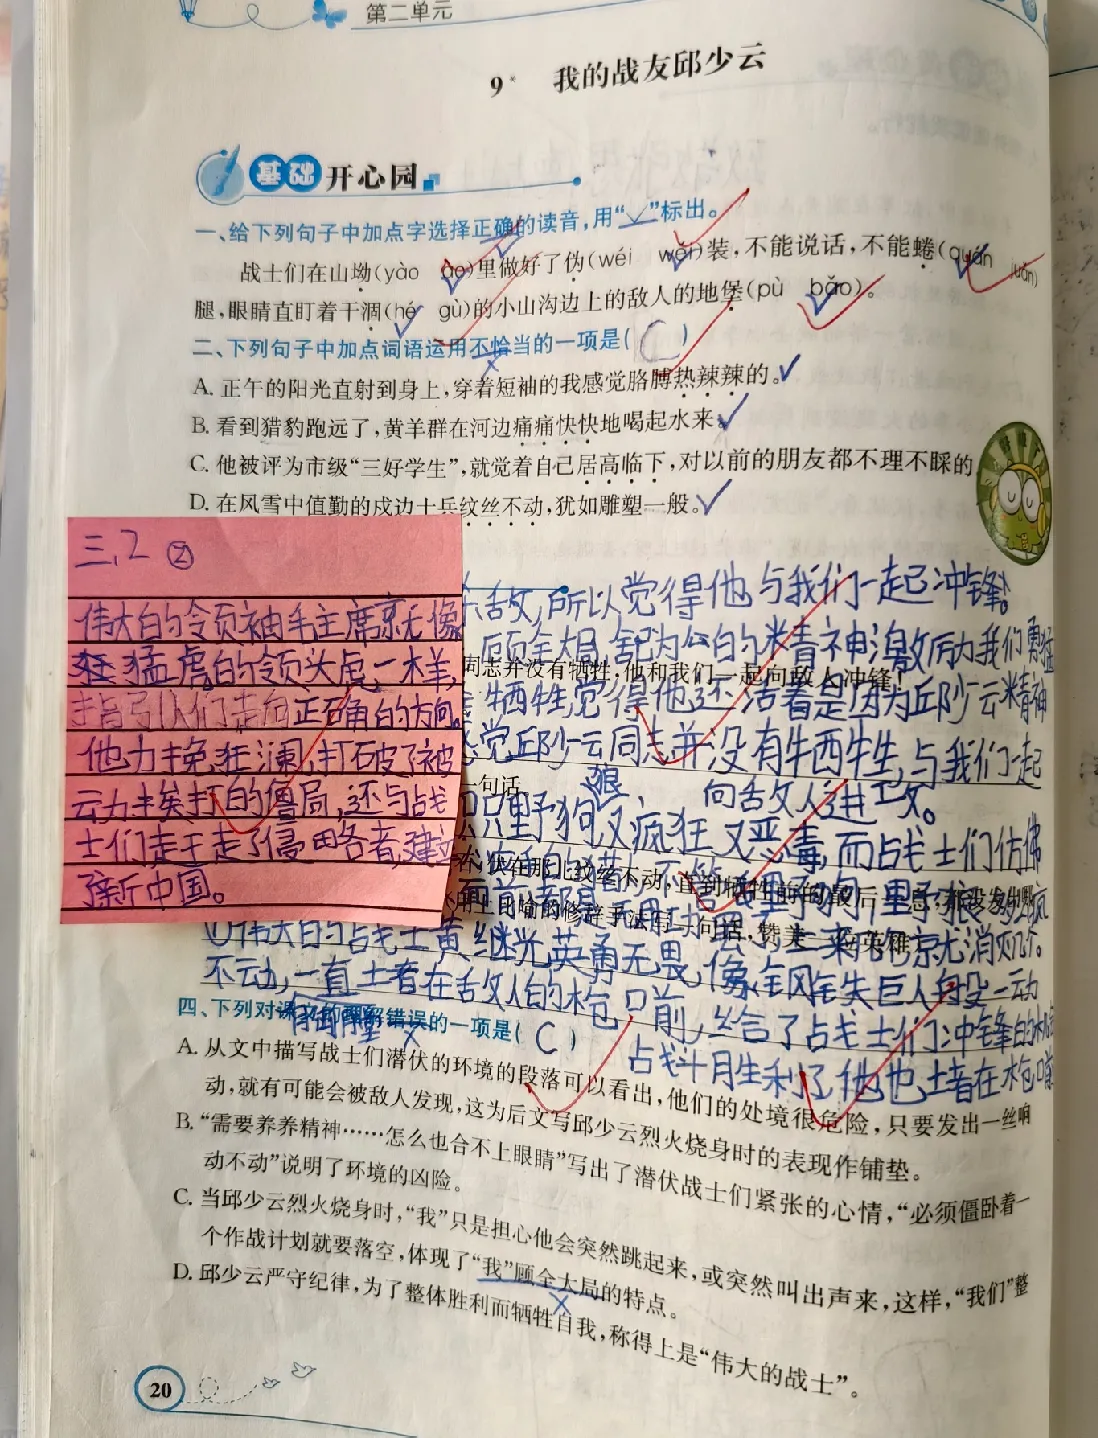 第二单元
9* 我的战友邱少云
基础开心园
一、给下列句子中加点字选择正确的读音，用“√”标出。
战士们在山坳(yào ào)里做好了伪(wéi wěi)装，不能说话，不能蜷(quán juǎn)
腿，眼睛直盯着干涸(hé gù)的小山沟边上的敌人的地堡(pù bǎo)。
二、下列句子中加点词语运用不恰当的一项是( C )
A. 正午的阳光直射到身上，穿着短袖的我感觉胳膊热辣辣的。
B. 看到猎豹跑远了，黄羊群在河边痛痛快快地喝起水来。
C. 他被评为市级“三好学生”，就觉着自己居高临下，对以前的朋友都不理不睬的
D. 在风雪中值勤的戍边士兵纹丝不动，犹如雕塑一般。
三、2 ②
伟大的领袖毛主席就像
猛虎的领头虎一样，
指引人们走向正确的方向。
他力挽狂澜，打破了被
动挨打的僵局，还与战
士们赶走了侵略者，建立
了新中国。
敌，所以觉得他与我们一起冲锋。
顾全大局，舍己为公的精神激励为我们勇猛
同志并没有牺牲，他和我们一起向敌人冲锋！
牺牲，觉得他还活着是因为邱少云精神
觉邱少云同志并没有牺牲，与我们一起
向敌人进攻。
一句话
只野狗又疯狂又恶毒，而战士们仿佛
狼
伏在那儿纹丝不动，直到牺牲前的最后一息，
伟大的战士黄继光英勇无畏，像钢铁巨人般一动
不动，一直堵在敌人的枪口前，给了战士们冲锋的
战斗胜利了，他也堵在枪口前
四、下列对课文的理解错误的一项是( C )
A. 从文中描写战士们潜伏的环境的段落可以看出，他们的处境很危险，只要发出一丝响
动，就有可能会被敌人发现，这为后文写邱少云烈火烧身时的表现作铺垫。
B. “需要养养精神……怎么也合不上眼睛”写出了潜伏战士们紧张的心情，“必须僵卧着一
动不动”说明了环境的凶险。
C. 当邱少云烈火烧身时，“我”只是担心他会突然跳起来，或突然叫出声来，这样，“我们”整
个作战计划就要落空，体现了“我”顾全大局的特点。
D. 邱少云严守纪律，为了整体胜利而牺牲自我，称得上是“伟大的战士”。
20